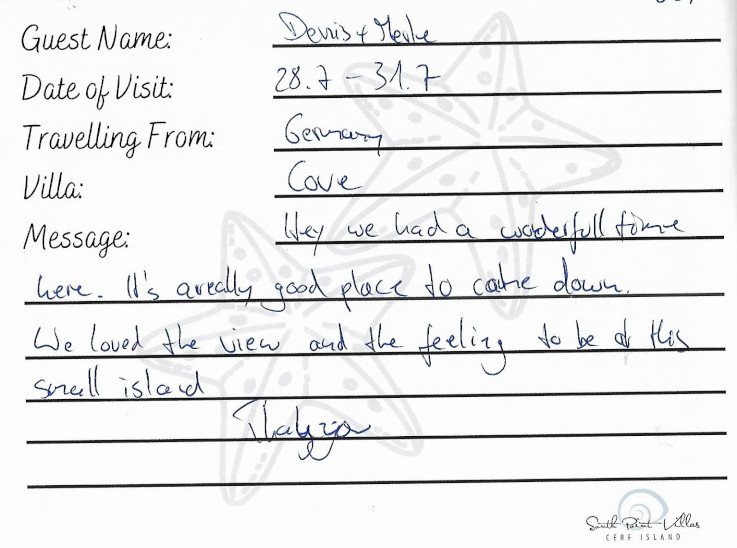 Guest Name: Dennis + Merle
Date of Visit: 28.7 - 31.7
Travelling From: Germany
Villa: Cove
Message: Hey we had a wonderfull time
here. It's a really good place to calme down.
We loved the view and the feeling to be at this
small island
South Point Villas
CERF ISLAND